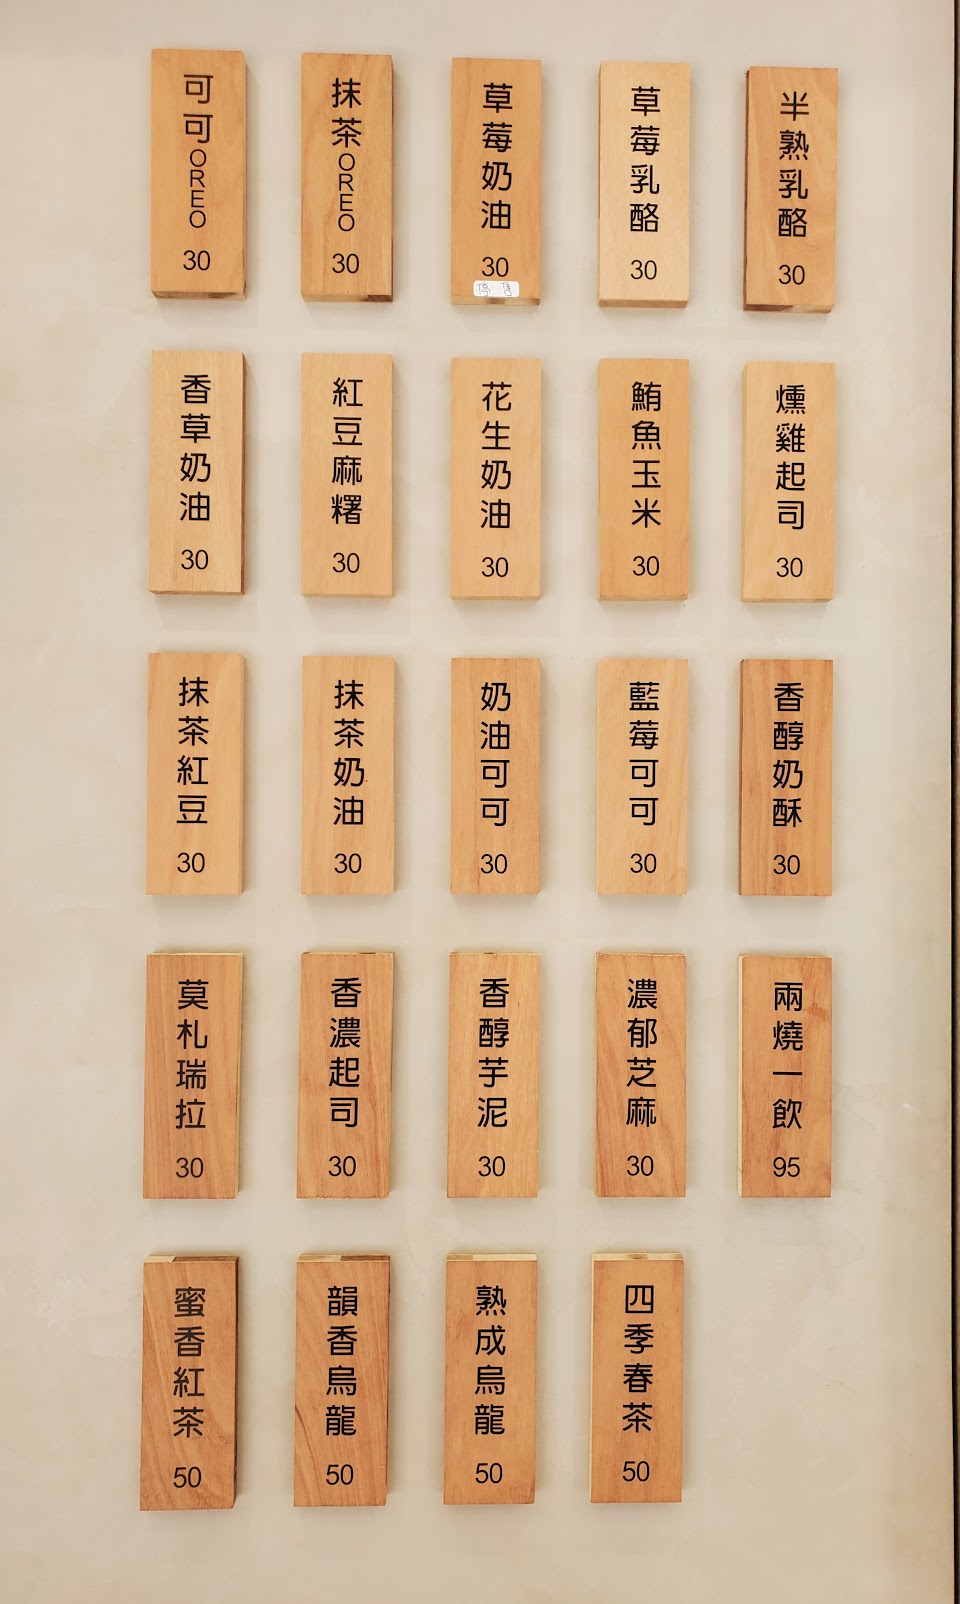 可可OREO 30
抹茶OREO 30
草莓奶油 30
停售
草莓乳酪 30
半熟乳酪 30
香草奶油 30
紅豆麻糬 30
花生奶油 30
鮪魚玉米 30
燻雞起司 30
抹茶紅豆 30
抹茶奶油 30
奶油可可 30
藍莓可可 30
香醇奶酥 30
莫札瑞拉 30
香濃起司 30
香醇芋泥 30
濃郁芝麻 30
兩燒一飲 95
蜜香紅茶 50
韻香烏龍 50
熟成烏龍 50
四季春茶 50